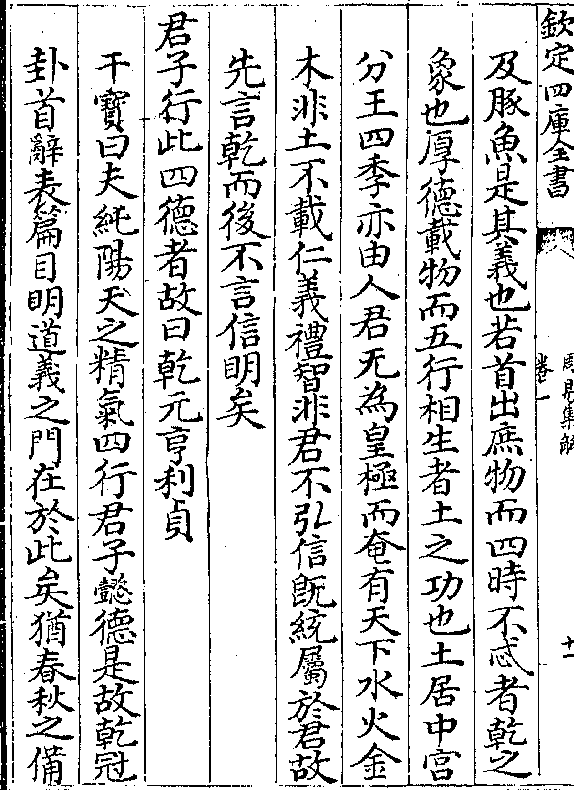 欽定四庫全書
周易集解
卷一
十一
及豚魚是其義也若首出庶物而四時不忒者乾之
象也厚德載物而五行相生者土之功也土居中宫
分王四季亦由人君无為皇極而奄有天下水火金
木非土不載仁義禮智非君不弘信既統屬於君故
先言乾而後不言信明矣
君子行此四德者故曰乾元亨利貞
干寶曰夫純陽天之精氣四行君子懿德是故乾冠
卦首辭表篇目明道義之門在於此矣猶春秋之備